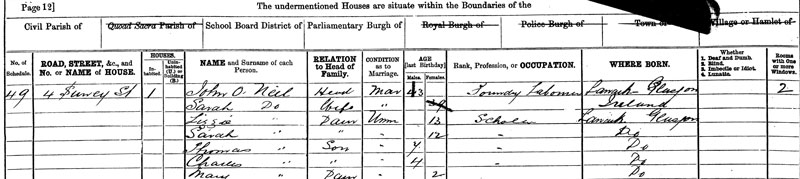 Page 12] The undermentioned Houses are situate within the Boundaries of the
Civil Parish of Quoad Sacra Parish of School Board District of Parliamentary Burgh of Royal Burgh of Police Burgh of Town of Village or Hamlet of
No. of Schedule. ROAD, STREET, &c., and No. or NAME of HOUSE. HOUSES. Inhabited. Uninhabited (U.) or Building (B.) NAME and Surname of each Person. RELATION to Head of Family. CONDITION as to Marriage. AGE [last Birthday] Males. Females. Rank, Profession, or OCCUPATION. WHERE BORN. Whether 1. Deaf and Dumb. 2. Blind. 3. Imbecile or Idiot. 4. Lunatic. Rooms with One or more Windows.
49 4 St 1 John O. Neil Head Mar 43 Foundry Labourer Lanark Glasgow 2
Sarah Do Wife " Ireland
Lizzie " Daur Unm 13 Scholar Lanark Glasgow
Sarah " " 12 " Do
Thomas " Son 7 " Do
Charles " " 4 Do
Mary " Daur 2 Do